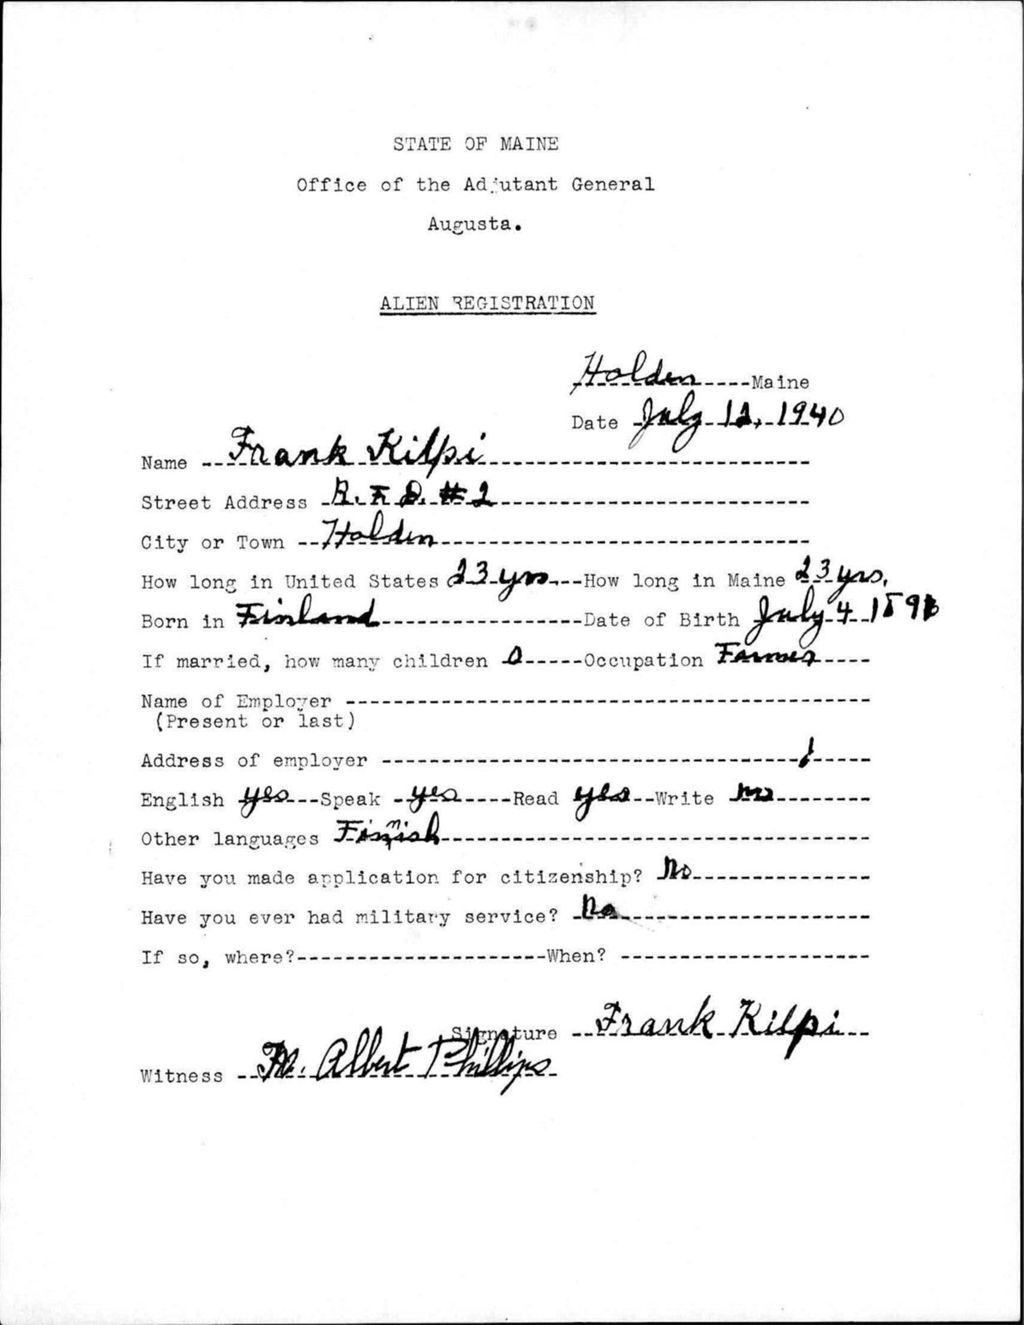 STATE OF MAINE
Office of the Adjutant General
Augusta.
ALIEN REGISTRATION
Holden Maine
Date July 12, 1940
Name Frank Kilpi
Street Address R. F. D. #2
City or Town Holden
How long in United States 23 yrs. How long in Maine 23 yrs.
Born in Finland Date of Birth July 4
If married, how many children 0 Occupation Farmer
Name of Employer
(Present or last)
Address of employer
English yes Speak yes Read yes Write no
Other languages Finnish
Have you made application for citizenship? No
Have you ever had military service? No
If so, where? When?
Signature Frank Kilpi
Witness M. Albert Phillips